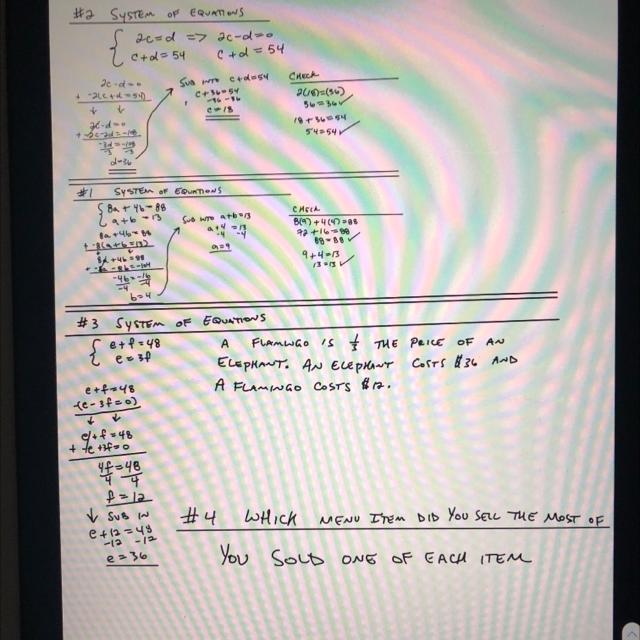 #2 SYSTEM OF EQUATIONS
2c=d => 2c-d=0
c+d=54 c+d=54
2c-d=0
+ -2(c+d=54)
2c-d=0
+ -2c-2d=-108
-3d=-108
-3 -3
d=36
SUB INTO c+d=54
c+36=54
-36 -36
c=18
CHECK
2(18)=(36)
36=36 ✓
18+36=54
54=54 ✓
#1 SYSTEM OF EQUATIONS
8a+4b=88
a+b=13
8a+4b=88
+ -8(a+b=13)
8a+4b=88
+ -8a-8b=-104
-4b=-16
-4 -4
b=4
SUB INTO a+b=13
a+4=13
-4 -4
a=9
CHECK
8(9)+4(4)=88
72+16=88
88=88 ✓
9+4=13
13=13 ✓
#3 SYSTEM OF EQUATIONS
e+f=48
e=3f
e+f=48
-(e-3f=0)
e+f=48
+ -e+3f=0
4f=48
4 4
f=12
SUB IN
e+12=48
-12 -12
e=36
A FLAMINGO IS 1/3 THE PRICE OF AN
ELEPHANT. AN ELEPHANT COSTS $36 AND
A FLAMINGO COSTS $12.
#4 WHICH MENU ITEM DID YOU SELL THE MOST OF
YOU SOLD ONE OF EACH ITEM